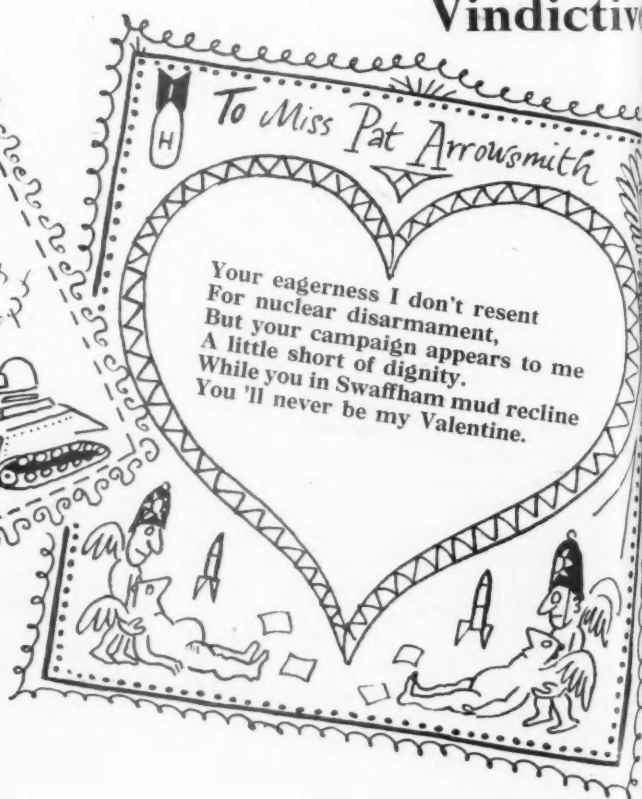 Vindictiv
H
To Miss Pat Arrowsmith
Your eagerness I don't resent
For nuclear disarmament,
But your campaign appears to me
A little short of dignity.
While you in Swaffham mud recline
You 'll never be my Valentine.